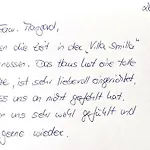 Frau Mangard,
die Zeit in der „Villa Smilla"
nossen. Das Haus hat eine tolle
, ist sehr liebevoll eingerichtet,
ss uns an nicht gefehlt hat.
uns sehr wohl gefühlt und
gerne wieder.